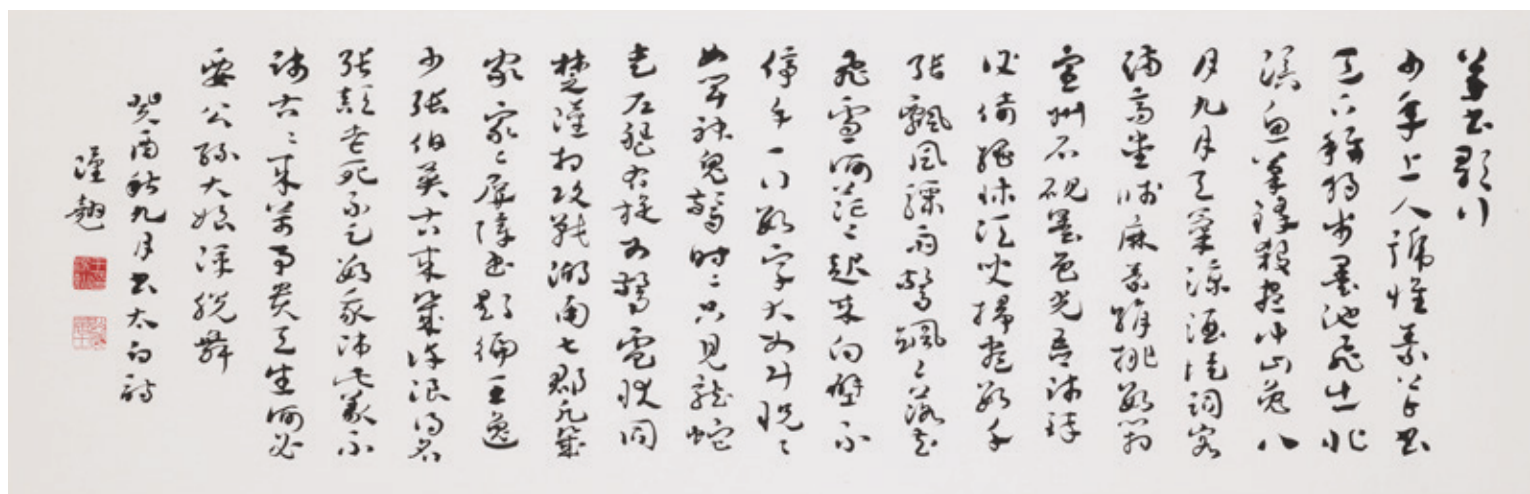 草書歌行
少年上人號懷素草書
天下稱獨步墨池飛出北
溟魚筆鋒殺盡中山兔八
月九月天氣涼酒徒詞客
滿高堂牋麻素絹排數箱
宣州石硯墨色光吾師醉
後倚繩床須臾掃盡數千
張飄風驟雨驚颯々落花
飛雪何茫々起來向壁不
停手一行數字大如斗怳々
如聞神鬼驚時々只見龍蛇
走左盤右旋如驚電狀同
楚漢相攻戰湖南七郡凡幾
家家々屏障書題徧王逸
少張伯英古來幾許浪得名
張顛老死不足數我師此義不
師古古々來萬事貴天生何必
要公孫大娘渾脫舞
癸酉秋九月書太白詩